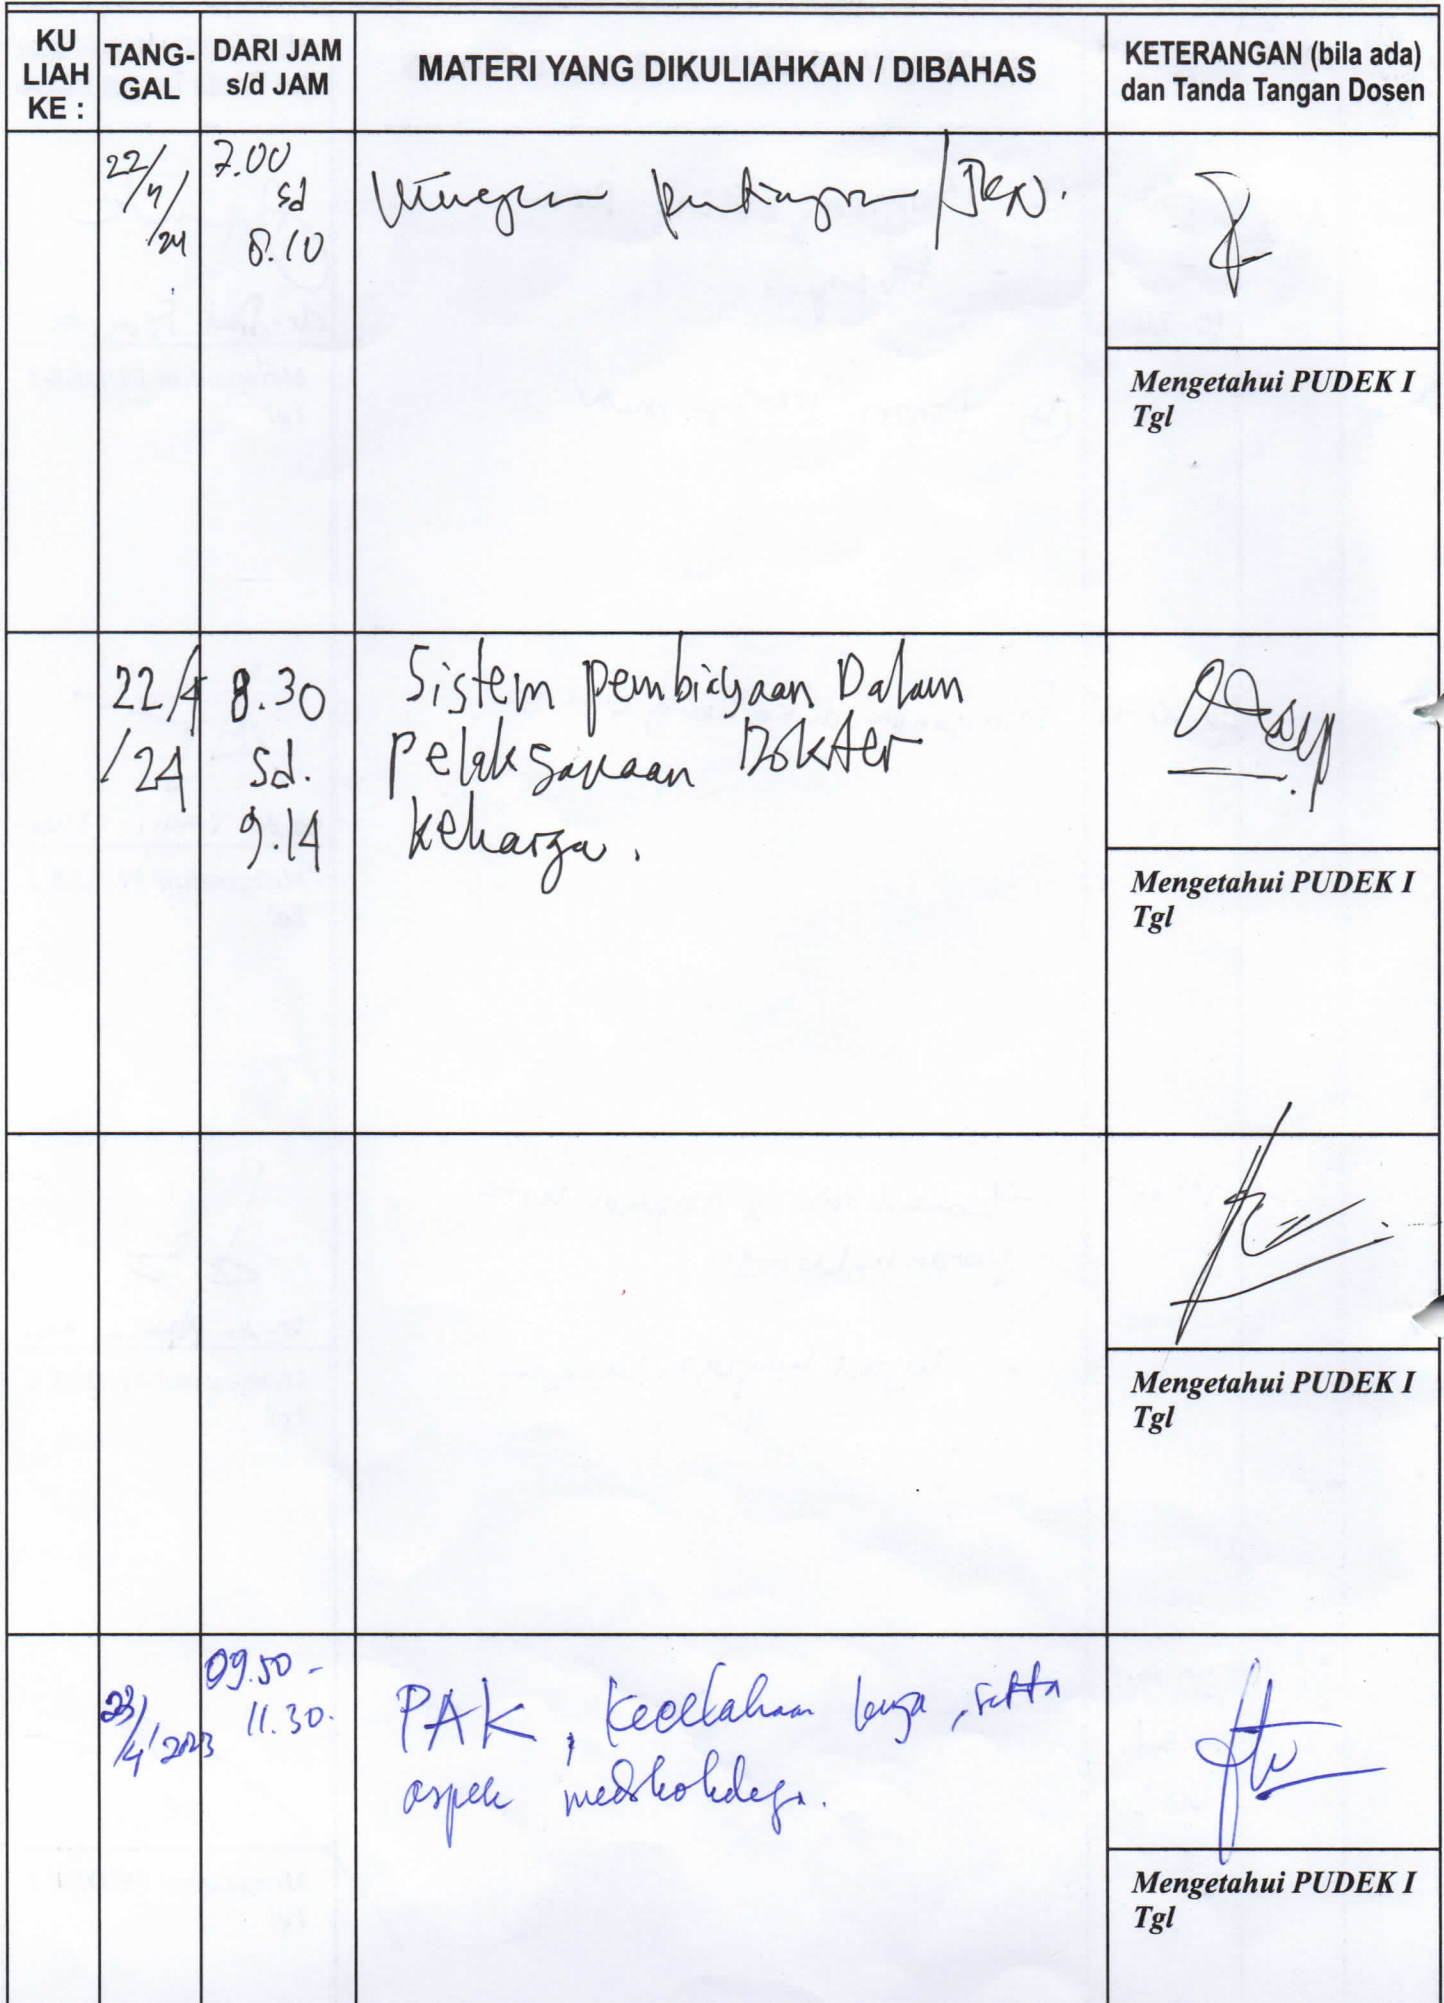 KU LIAH KE :
TANG-GAL
DARI JAM s/d JAM
MATERI YANG DIKULIAHKAN / DIBAHAS
KETERANGAN (bila ada) dan Tanda Tangan Dosen
22/4/24
7.00 sd 8.10
Mengetahui PUDEK I
Tgl
22/4 8.30 Sistem pembiayaan Dalam
/24 sd. pelaksanaan Dokter
9.14 keluarga.
Mengetahui PUDEK I
Tgl
Mengetahui PUDEK I
Tgl
09.50 -
23/4/2023 11.30. PAK, kecelakaan kerja, serta
aspek medikolegal.
Mengetahui PUDEK I
Tgl